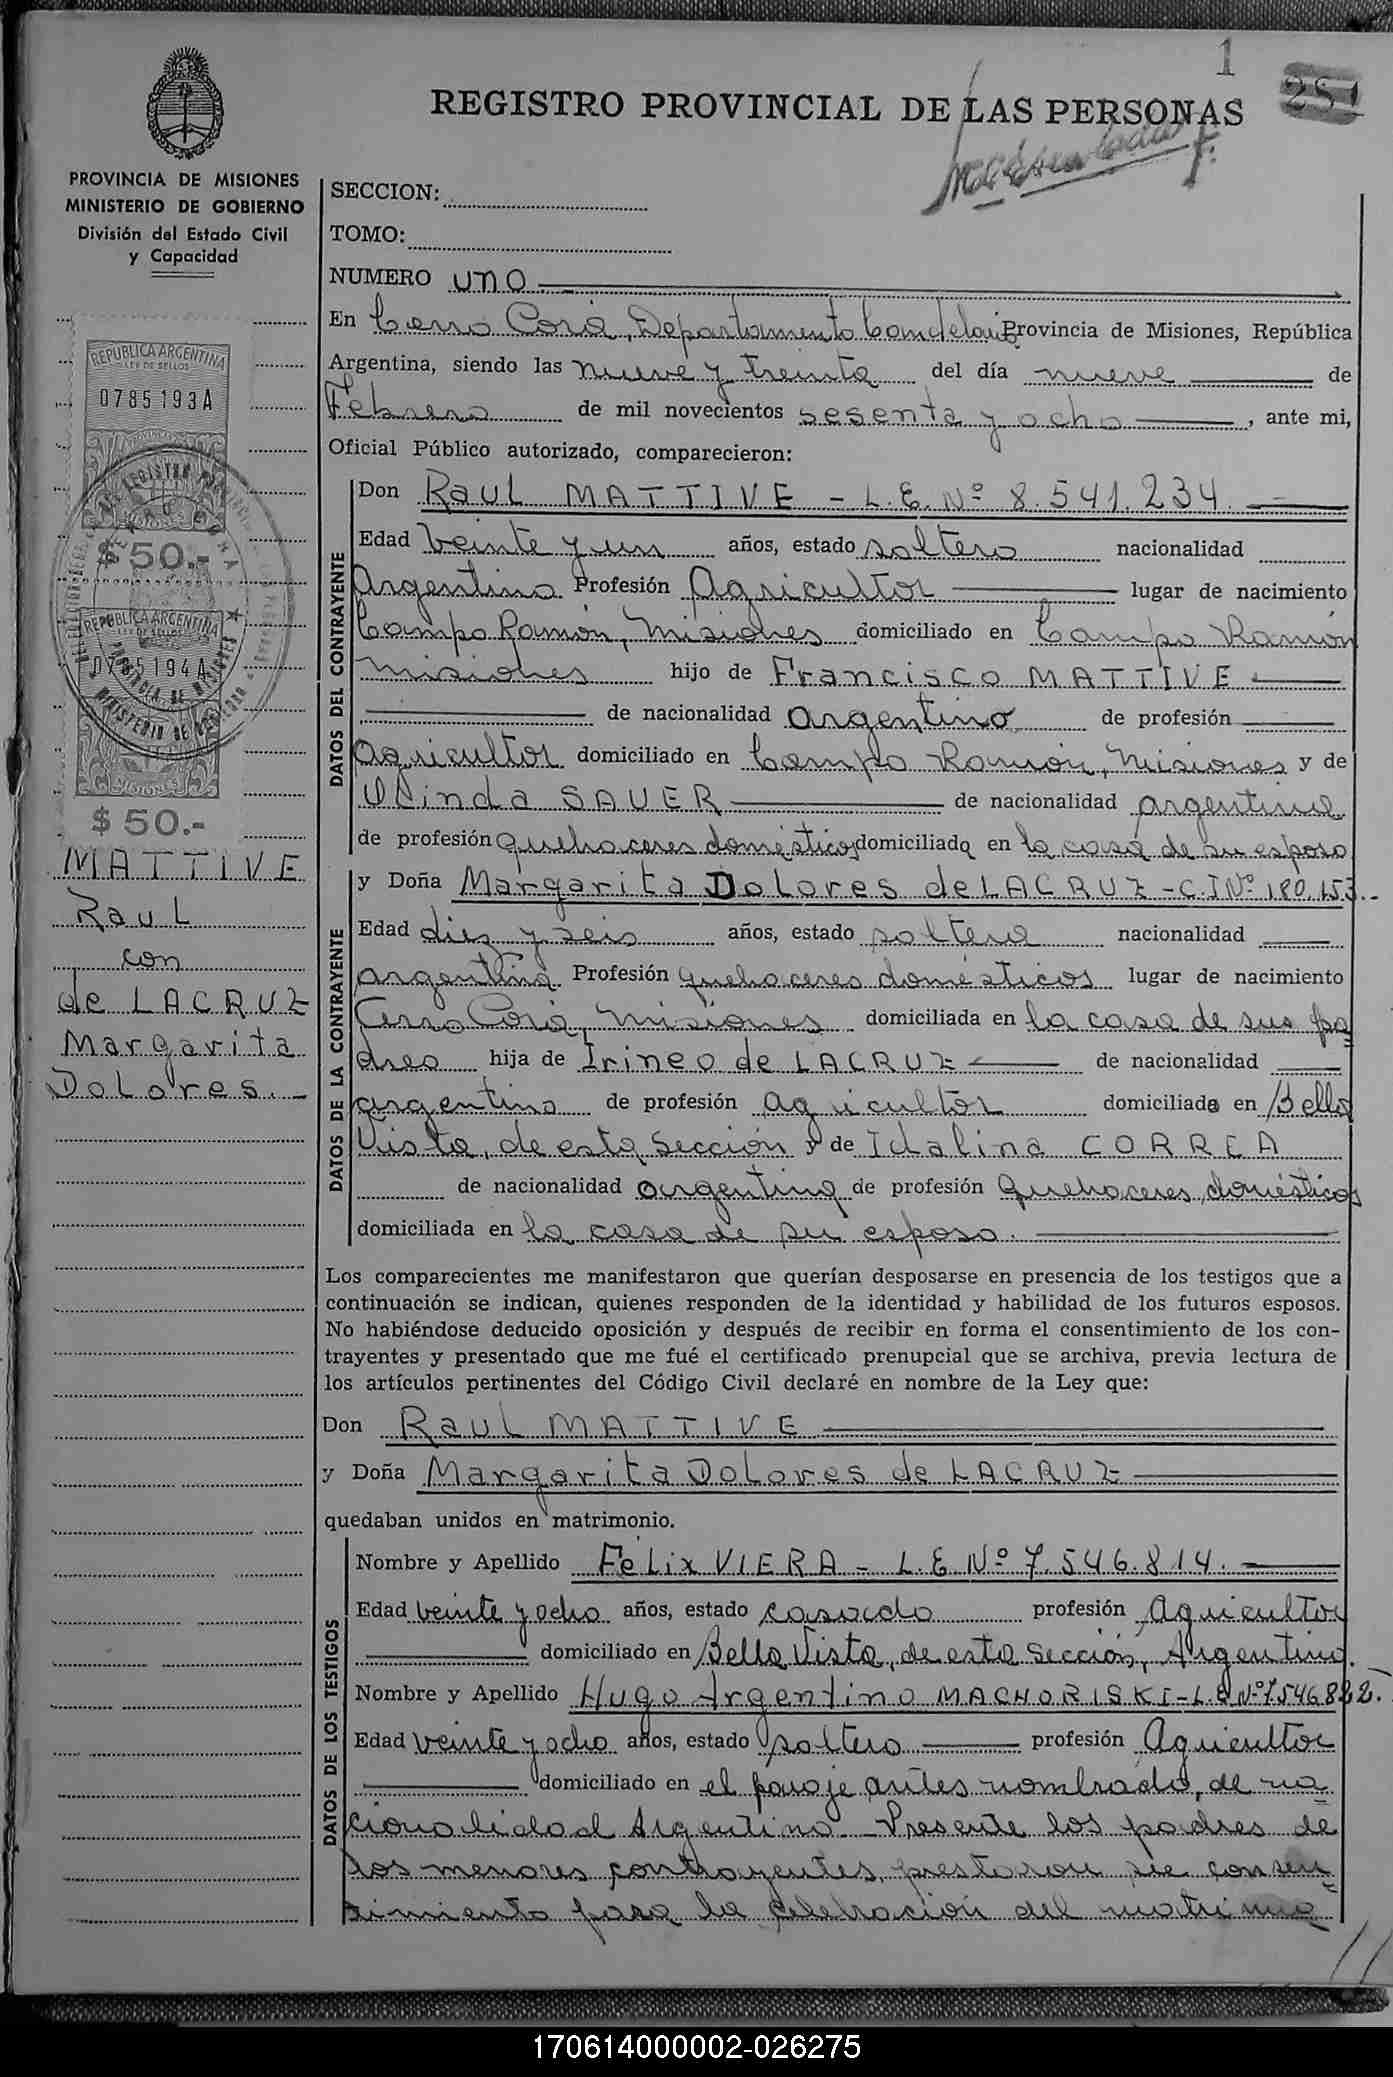 1
251
REGISTRO PROVINCIAL DE LAS PERSONAS
PROVINCIA DE MISIONES
MINISTERIO DE GOBIERNO
División del Estado Civil
y Capacidad
SECCION:
TOMO:
NUMERO uno
En Cerro Corá, Departamento Candelaria Provincia de Misiones, República
Argentina, siendo las nueve y treinta del día nueve de
Febrero de mil novecientos sesenta y ocho, ante mi,
Oficial Público autorizado, comparecieron:
REPUBLICA ARGENTINA
LEY DE SELLOS
0785193A
MISIONES
$50.-
REPUBLICA ARGENTINA
LEY DE SELLOS
0785194A
MISIONES
$50.-
MATTIVE
Raul
con
de LACRUZ
Margarita
Dolores.-
DATOS DEL CONTRAYENTE
Don Raul MATTIVE - L.E. Nº 8.541.234
Edad veinte y un años, estado soltero nacionalidad
Argentino Profesión Agricultor lugar de nacimiento
Campo Ramón, Misiones domiciliado en Campo Ramón
Misiones hijo de Francisco MATTIVE
de nacionalidad argentino de profesión
agricultor domiciliado en Campo Ramón, Misiones y de
Olinda SAUER de nacionalidad argentina
de profesión quehaceres domésticos domiciliada en la casa de su esposo
DATOS DE LA CONTRAYENTE
y Doña Margarita Dolores de LACRUZ - C.I Nº 180.153.-
Edad diez y seis años, estado soltera nacionalidad
argentina Profesión quehaceres domésticos lugar de nacimiento
Cerro Corá, Misiones domiciliada en la casa de sus pa
dres hija de Irineo de LACRUZ de nacionalidad
argentino de profesión agricultor domiciliado en Bella
Vista, de esta Sección y de Idalina CORREA
de nacionalidad argentina de profesión Quehaceres domésticos
domiciliada en la casa de su esposo.
Los comparecientes me manifestaron que querían desposarse en presencia de los testigos que a
continuación se indican, quienes responden de la identidad y habilidad de los futuros esposos.
No habiéndose deducido oposición y después de recibir en forma el consentimiento de los con-
trayentes y presentado que me fué el certificado prenupcial que se archiva, previa lectura de
los artículos pertinentes del Código Civil declaré en nombre de la Ley que:
Don Raul MATTIVE
y Doña Margarita Dolores de LACRUZ
quedaban unidos en matrimonio.
DATOS DE LOS TESTIGOS
Nombre y Apellido Felix VIERA - L.E. Nº 7.546.814.
Edad veinte y ocho años, estado casado profesión Agricultor
domiciliado en Bella Vista, de esta Sección, Argentino.
Nombre y Apellido Hugo Argentino MACHORISKI - L.E Nº 7.546.822.-
Edad veinte y ocho años, estado soltero profesión Agricultor
domiciliado en el paraje antes nombrado, de na
cionalidad Argentino. Presente los padres de
los menores contrayentes, prestaron su consen
timiento para la celebración del matrimo
170614000002-026275